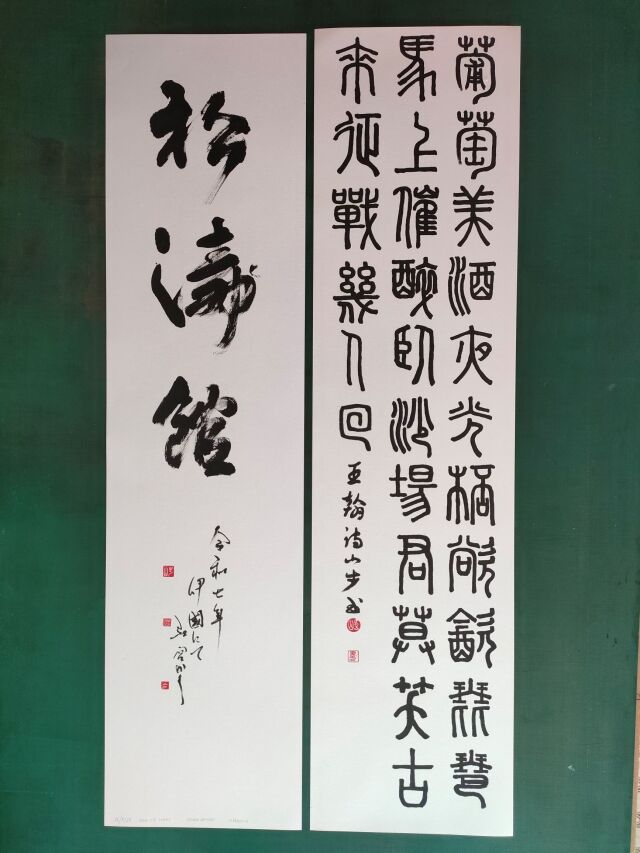 葡萄美酒夜光桮欲飲琵琶
馬上催醉臥沙場君莫笑古
來征戰幾人回
王翰詩山步書
松濤館
令和七年
伊國にて